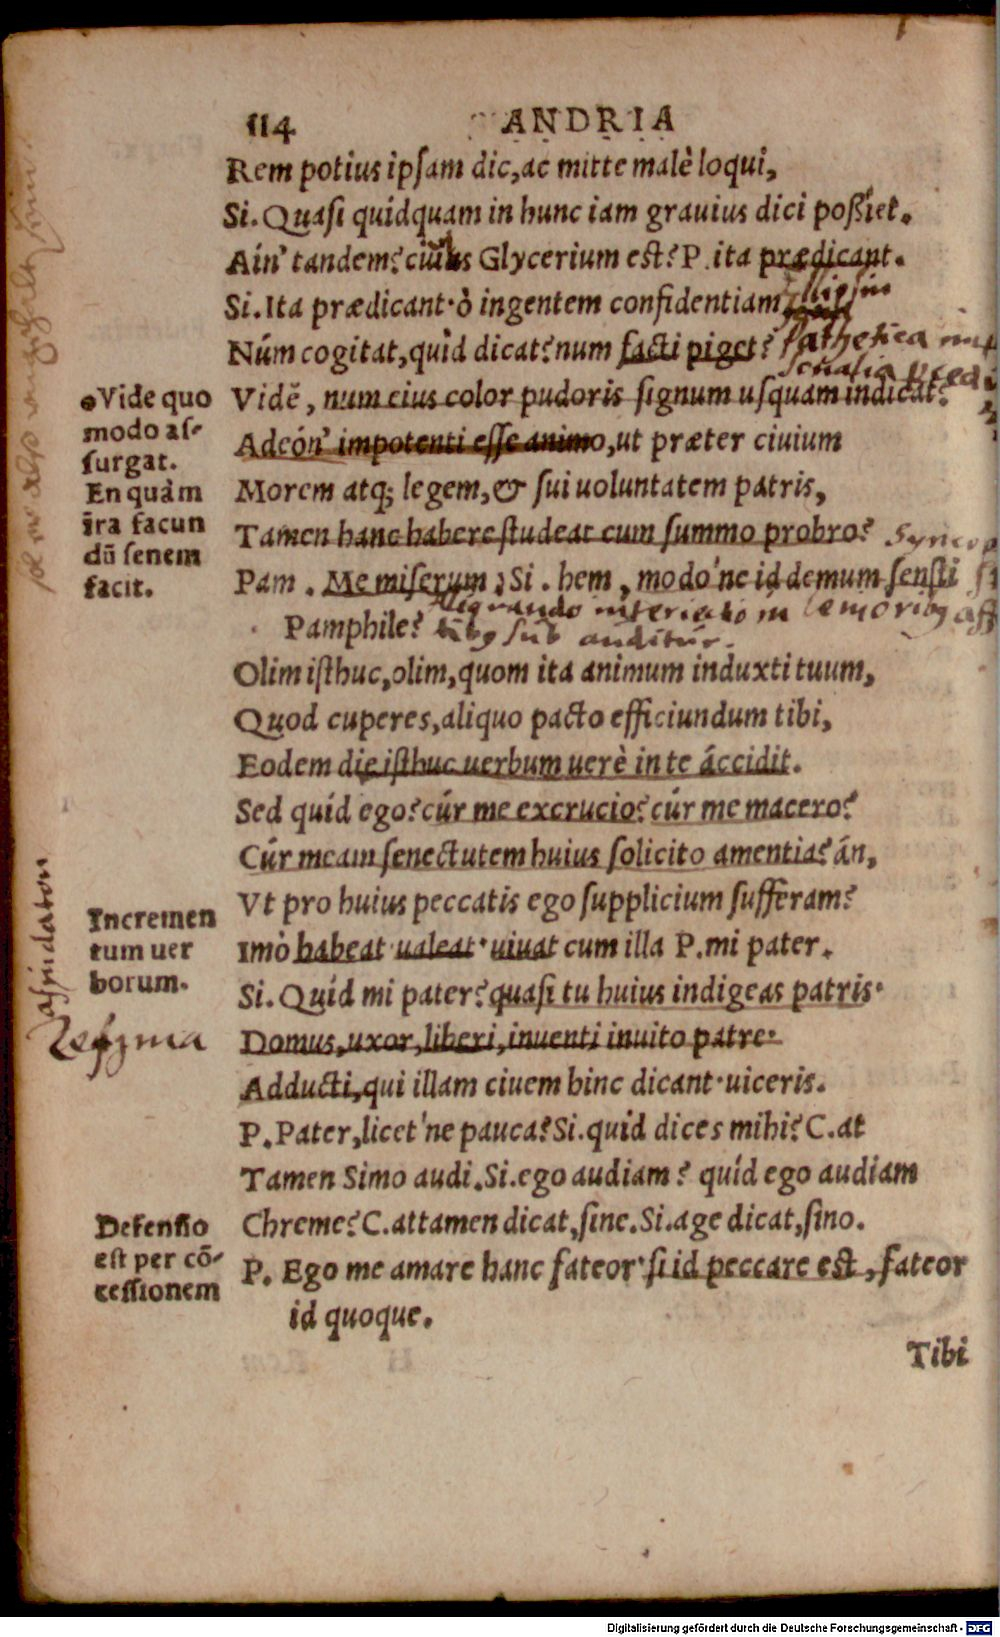 114 ANDRIA
Rem potius ipſam dic, ac mitte malè loqui,
Si. Quaſi quidquam in hunc iam grauius dici poßiet.
Ain' tandem? ciuis Glycerium est? P. ita prædicant.
Si. Ita prædicant· ò ingentem confidentiam
Ellipsin
Núm cogitat, quid dicat? num facti piget?
Pathetica
Vidē, num eius color pudoris ſignum uſquam indicat?
Adeón' impotenti eſſe animo, ut præter ciuium
Morem atq; legem, & ſui uoluntatem patris,
Tamen hanc habere ſtudeat cum ſummo probro?
Pam. Me miſerum; Si. hem, modo'ne id demum ſenſti
Pamphile?
sub auditur.
Olim iſthuc, olim, quom ita animum induxti tuum,
Quod cuperes, aliquo pacto efficiundum tibi,
Eodem die iſthuc uerbum uerè in te áccidit.
Sed quid ego? cúr me excrucio? cúr me macero?
Cúr meam ſenectutem huius ſolicito amentia? án,
Vt pro huius peccatis ego ſupplicium ſufferam?
Imò habeat· ualeat· uiuat cum illa P. mi pater.
Si. Quid mi pater? quaſi tu huius indigeas patris·
Domus, uxor, liberi, inuenti inuito patre·
Adducti, qui illam ciuem hinc dicant· uiceris.
P. Pater, licet'ne pauca? Si. quid dices mihi? C. at
Tamen Simo audi. Si. ego audiam? quid ego audiam
Chreme? C. attamen dicat, ſine. Si. age dicat, ſino.
P. Ego me amare hanc fateor· ſi id peccare est, fateor
id quoque.
Tibi
Vide quo
modo aſ-
ſurgat.
En quàm
ira facun
dū ſenem
facit.
Incremen
tum uer
borum.
asindaton
Zefgma
Defenſio
eſt per cō-
ceſſionem
Digitalisierung gefördert durch die Deutsche Forschungsgemeinschaft - DFG